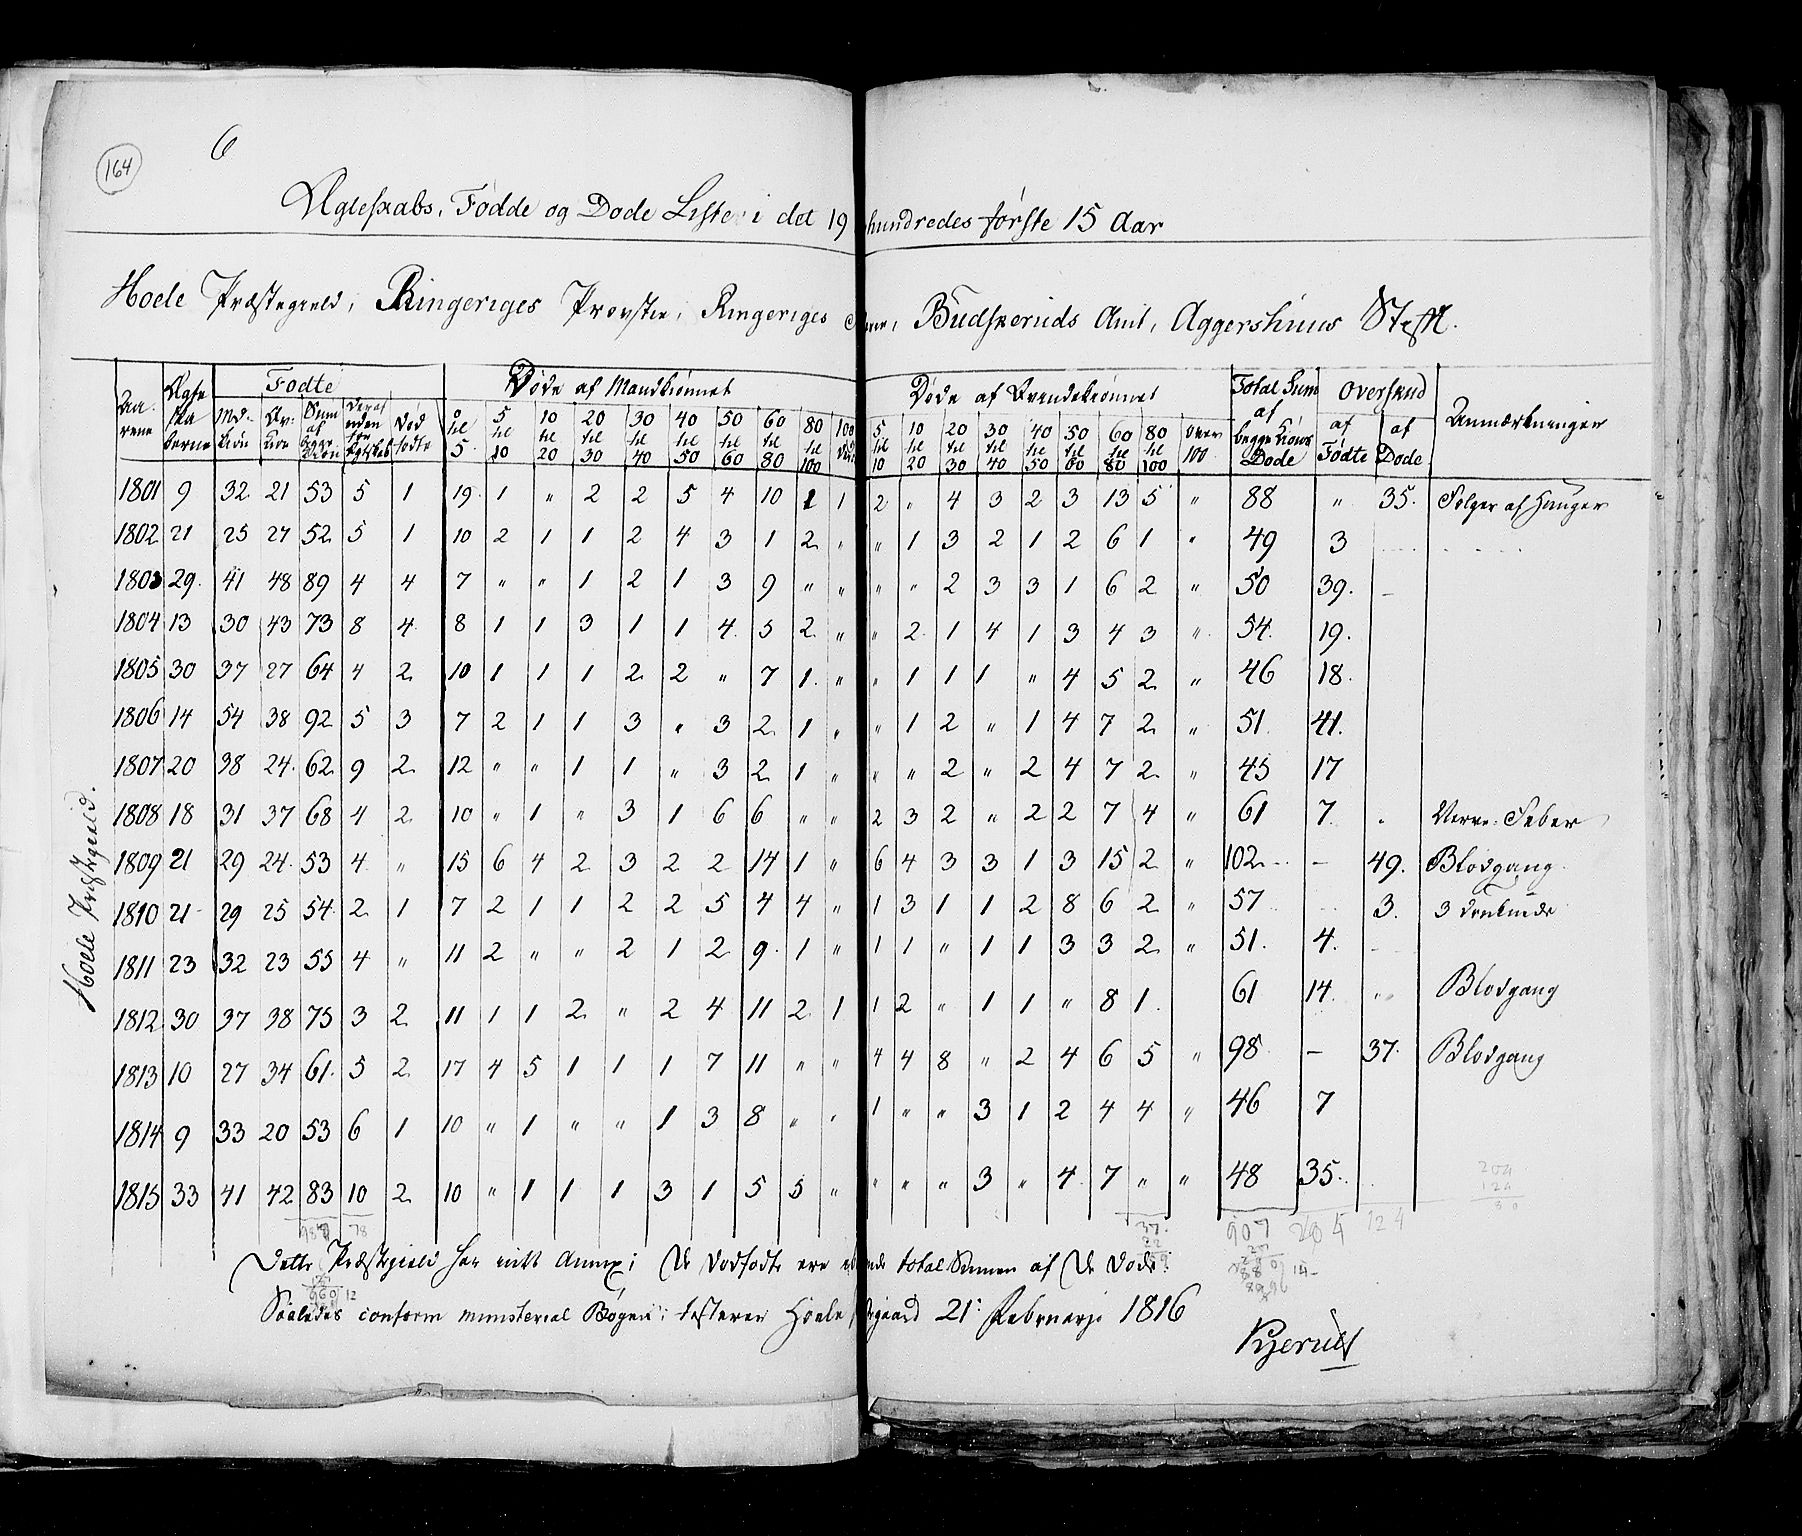 164
6
Ægteskabs, Fødde og Døde Liste i det 19 hundredes første 15 Aar
Hoele Præstegield, Ringeriges Provstie, Ringeriges Budskeruds Amt, Aggershuus Stift.
Hoele Præstegield.
Aarene Ægteskaberne Fødte Døde af Mandkiønnet Døde af Qvindekiønnet Total Sum af begge Kiøns Døde Overskud af Fødte af Døde Anmærkninger
Md. Kiøn Qv: Kiøn Sum af begge Kiøn deraf uden for Egteskab Død fødte 0 til 5 5 til 10 10 til 20 20 til 30 30 til 40 40 til 50 50 til 60 60 til 80 80 til 100 100 5 til 10 10 til 20 20 til 30 30 til 40 40 til 50 50 til 60 60 til 80 80 til 100 over 100
1801 9 32 21 53 5 1 19 1 " 2 2 5 4 10 1 1 2 " 4 3 2 3 13 5 " 88 " 35. Følger af Hunger
1802 21 25 27 52 5 1 10 2 1 1 2 4 3 1 2 " " 1 3 2 1 2 6 1 " 49 3
1803 29. 41 48 89 4 4 7 " " 1 2 1 3 9 " " " " 2 3 3 1 6 2 " 50 39.
1804 13 30 43 73 8 4 8 1 1 3 1 1 4 5 2 " " 2 1 4 1 3 4 3 " 54 19.
1805 30 37 27 64 4 2 10 1 1 1 2 2 " 7 1 " " 1 1 1 " 4 5 2 " 46 18.
1806 14 54 38 92 5 3 7 2 1 1 3 " 3 2 1 " " 1 2 " 1 4 7 2 " 51 41.
1807 20 38 24 62 9 2 12 " " 1 1 " 3 2 1 " " " 2 " 2 4 7 2 " 45 17
1808 18 31 37 68 4 2 10 " 1 " 3 1 6 6 " " 2 3 2 " 2 2 7 4 " 61 7 Nerve-Feber
1809 21 29 24 53 4 " 15 6 4 2 3 2 2 14 1 " 6 4 3 3 1 3 15 2 " 102 – 49. Blodgang
1810 21 29 25 54 2 1 7 2 1 1 2 2 5 4 4 " 1 3 1 1 2 8 6 2 " 57 3. 3 druknede
1811 23 32 23 55 4 " 11 2 " " 2 1 2 9 1 " 1 1 " 1 1 3 3 2 " 51. 4.
1812 30 37 38 75 3 2 11 1 1 2 " 2 4 11 2 1 1 2 " 1 1 " 8 1 61 14 " Blodgang
1813 10 27 34 61 5 2 17 4 5 1 1 1 7 11 " " 4 4 8 " 2 4 6 5 " 98 – 37. Blodgang
1814 9 33 20 53 6 1 10 " 1 " " 1 3 8 " " 1 " " 3 1 2 4 4 " 46 7
1815 33 41 42 83 10 2 10 " 1 1 1 3 1 5 5 " " " " 3 " 4 7 " " 48 35.
78 37 22 59 907 204 124
204
124
Dette Præstegield har intet Annex; De Dødfødte ere total Summen af De Døde.
Saaledes conform ministerial Bogen; testerer Hoele 21. Februarji 1816
Kjerulf